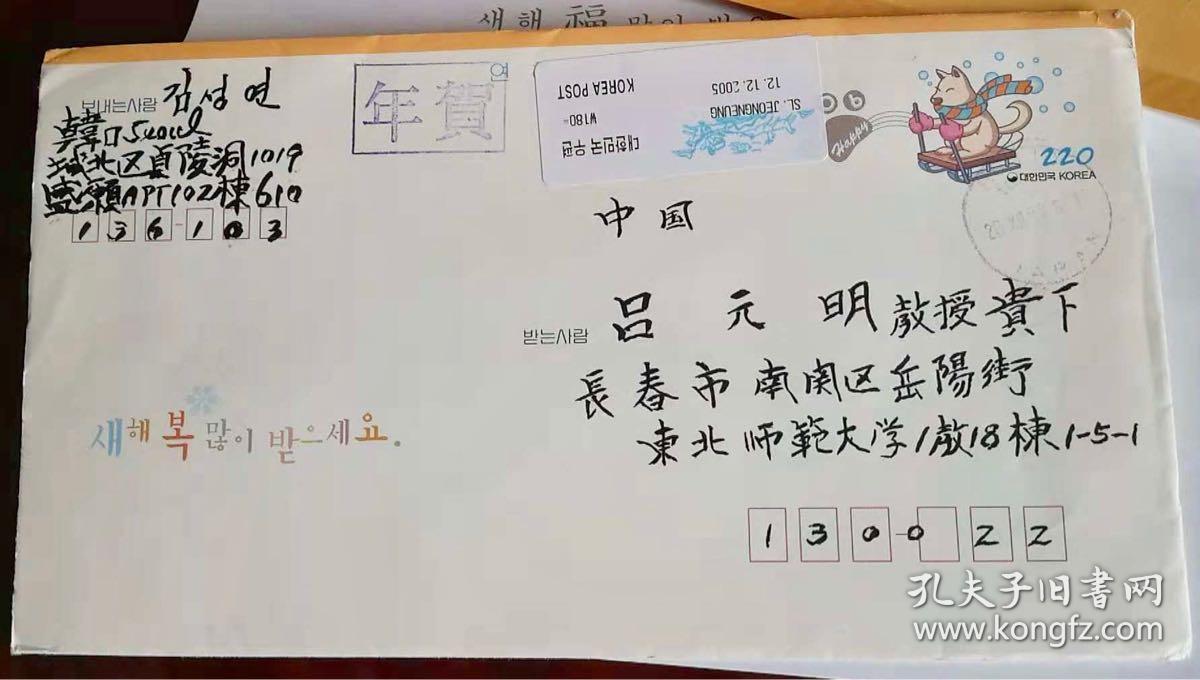 새해 福 많이 받
보내는사람 김성연
韓口 Seoul
城北区貞陵洞1019
盛願APT102棟610
136-103
연
年賀
KOREA POST
12.12.2005
SL. JEONGNEUNG
₩180=
대한민국 우편
Happy
220
대한민국 KOREA
中国
받는사람 吕元明 教授 貴下
長春市南関区岳陽街
東北师範大学1教18棟1-5-1
130-022
새해 복 많이 받으세요.
孔夫子旧书网
www.kongfz.com